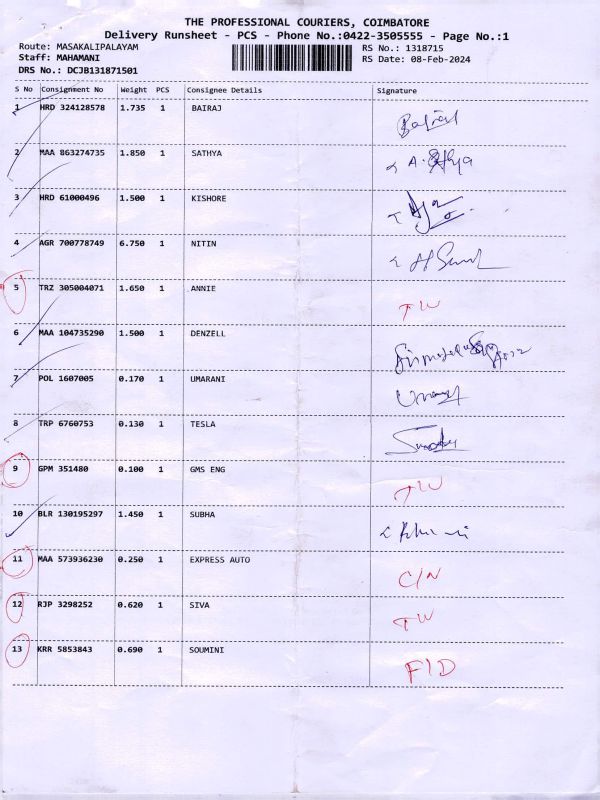 THE PROFESSIONAL COURIERS, COIMBATORE
Delivery Runsheet - PCS - Phone No.:0422-3505555 - Page No.:1
Route: MASAKALIPALAYAM RS No.: 1318715
Staff: MAHAMANI RS Date: 08-Feb-2024
DRS No.: DCJB131871501
S No Consignment No Weight PCS Consignee Details Signature
1 HRD 324128578 1.735 1 BAIRAJ
2 MAA 863274735 1.850 1 SATHYA
3 HRD 61000496 1.500 1 KISHORE
4 AGR 700778749 6.750 1 NITIN
5 TRZ 305004071 1.650 1 ANNIE TW
6 MAA 104735290 1.500 1 DENZELL
7 POL 1607005 0.170 1 UMARANI
8 TRP 6760753 0.130 1 TESLA
9 GPM 351480 0.100 1 GMS ENG TW
10 BLR 130195297 1.450 1 SUBHA
11 MAA 573936230 0.250 1 EXPRESS AUTO C/N
12 RJP 3298252 0.620 1 SIVA TW
13 KRR 5853843 0.690 1 SOUMINI F/D